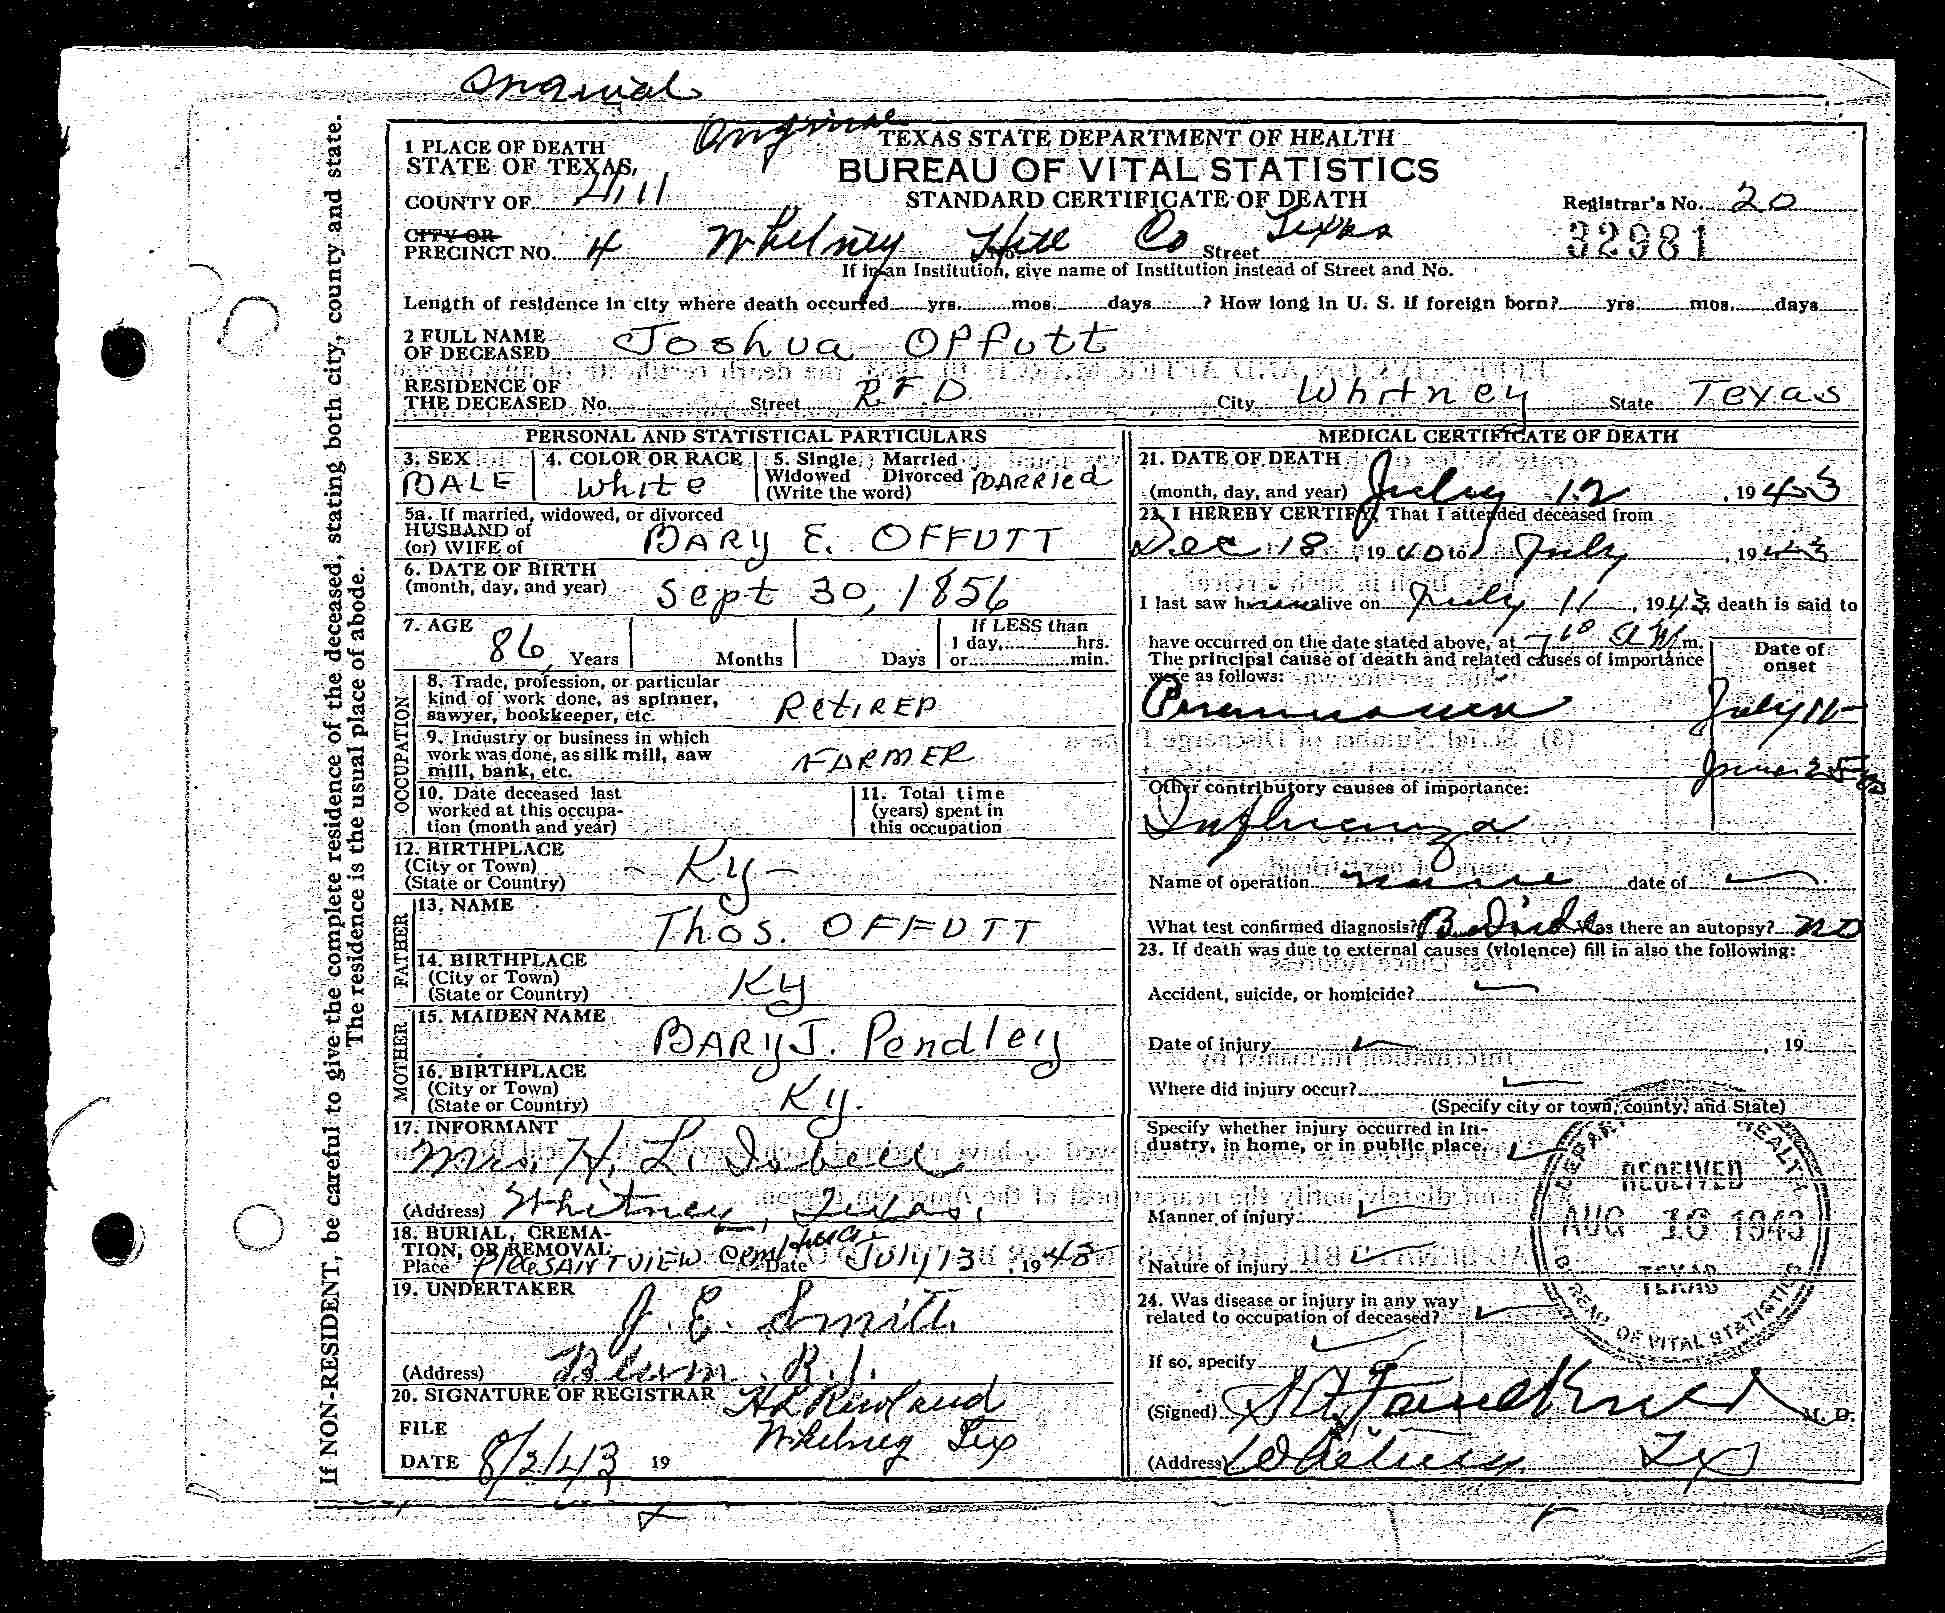 Original
Original
1 PLACE OF DEATH
STATE OF TEXAS,
COUNTY OF Hill
TEXAS STATE DEPARTMENT OF HEALTH
BUREAU OF VITAL STATISTICS
STANDARD CERTIFICATE OF DEATH
Registrar's No. 20
32981
CITY OR
PRECINCT NO. 4 Whitney Hill Co Street Texas
If in an Institution, give name of Institution instead of Street and No.
Length of residence in city where death occurred yrs. mos. days ? How long in U. S. if foreign born? yrs. mos. days
2 FULL NAME
OF DECEASED Joshua Offutt
RESIDENCE OF
THE DECEASED No. Street R.F.D City Whitney State Texas
PERSONAL AND STATISTICAL PARTICULARS
3. SEX MALE
4. COLOR OR RACE White
5. Single, Married
Widowed Divorced
(Write the word) MARRIED
5a. If married, widowed, or divorced
HUSBAND of
(or) WIFE of MARY E. OFFUTT
6. DATE OF BIRTH
(month, day, and year) Sept 30, 1856
7. AGE 86 Years Months Days
If LESS than
1 day, hrs.
or min.
OCCUPATION
8. Trade, profession, or particular
kind of work done, as spinner,
sawyer, bookkeeper, etc. RETIRED
9. Industry or business in which
work was done, as silk mill, saw
mill, bank, etc. FARMER
10. Date deceased last
worked at this occupa-
tion (month and year)
11. Total time
(years) spent in
this occupation
12. BIRTHPLACE
(City or Town)
(State or Country) - Ky -
FATHER
13. NAME Thos. OFFUTT
14. BIRTHPLACE
(City or Town)
(State or Country) Ky
MOTHER
15. MAIDEN NAME MARY J. Pendley
16. BIRTHPLACE
(City or Town)
(State or Country) Ky.
17. INFORMANT
Mrs. H. L. Isbell
(Address) Whitney, Texas.
18. BURIAL, CREMA-
TION, OR REMOVAL
Place PleesANT VIEW Cemetery Date July 13, 1943
19. UNDERTAKER
J. E. Smith
(Address) Blum. R.1.
20. SIGNATURE OF REGISTRAR
Whitney Tex
FILE
DATE 8/2/43 19
MEDICAL CERTIFICATE OF DEATH
21. DATE OF DEATH
(month, day, and year) July 12, 1943
22. I HEREBY CERTIFY, That I attended deceased from
Dec 18, 1940 to July, 1943
I last saw him alive on July 11, 1943, death is said to
have occurred on the date stated above, at 7 AM m.
The principal cause of death and related causes of importance
were as follows:
Date of
onset
Pneumonia July 11
June 25
Other contributory causes of importance:
Influenza
Name of operation none date of
What test confirmed diagnosis? Was there an autopsy? no
23. If death was due to external causes (violence) fill in also the following:
Accident, suicide, or homicide?
Date of injury , 19
Where did injury occur?
(Specify city or town, county, and State)
Specify whether injury occurred in in-
dustry, in home, or in public place.
Manner of injury
Nature of injury
24. Was disease or injury in any way
related to occupation of deceased?
If so, specify
(Signed) Faulkner M. D.
(Address) Whitney Tex
RECEIVED
AUG 16 1943
TEXAS
BUREAU OF VITAL STATISTICS
If NON-RESIDENT, be careful to give the complete residence of the deceased, stating both city, county and state.
The residence is the usual place of abode.